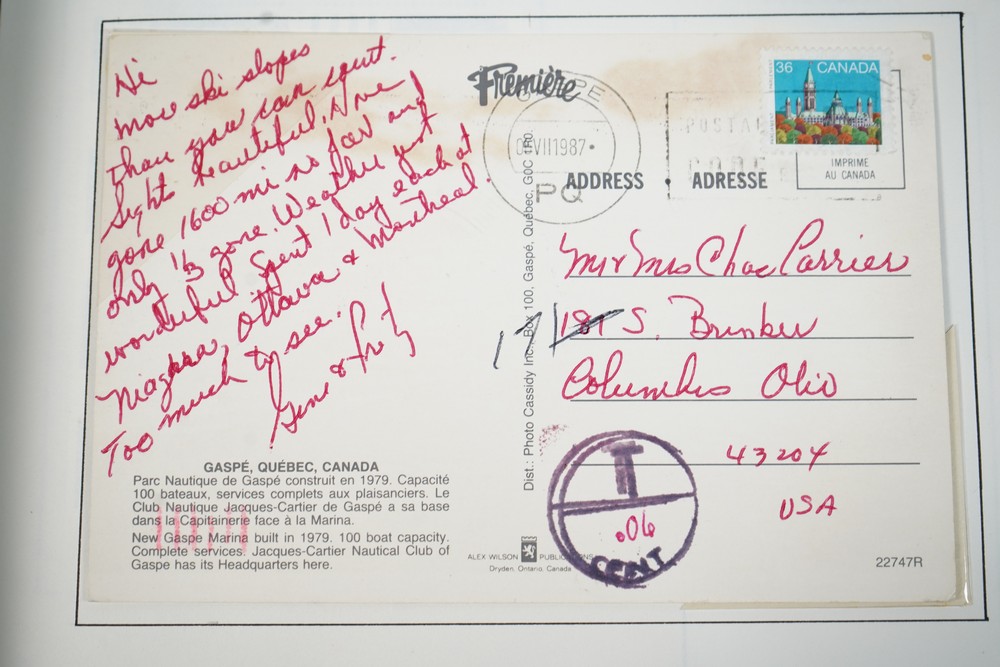 Hi
more ski slopes
than you can squt.
Sights beautiful. Have
gone 1600 mi so far and
only 1/3 gone. Weather just
wonderful. Spent 1 day each at
Niagara, Ottawa & Montreal.
Too much to see.
Gene &
GASPÉ, QUÉBEC, CANADA
Parc Nautique de Gaspé construit en 1979. Capacité
100 bateaux, services complets aux plaisanciers. Le
Club Nautique Jacques-Cartier de Gaspé a sa base
dans la Capitainerie face à la Marina.
New Gaspe Marina built in 1979. 100 boat capacity.
Complete services. Jacques-Cartier Nautical Club of
Gaspe has its Headquarters here.
Première
PE
VII1987
PQ
Dist.: Photo Cassidy Inc., Box 100, Gaspé, Québec, G0C 1R0.
ALEX WILSON PUBLICATIONS
Dryden, Ontario, Canada
36 CANADA
POSTAL
CODE
IMPRIME
AU CANADA
ADDRESS • ADRESSE
Mr & Mrs Chas Carrier
181 S. Brinker
17
Columbus Ohio
43204
USA
T
.06
CENT
22747R